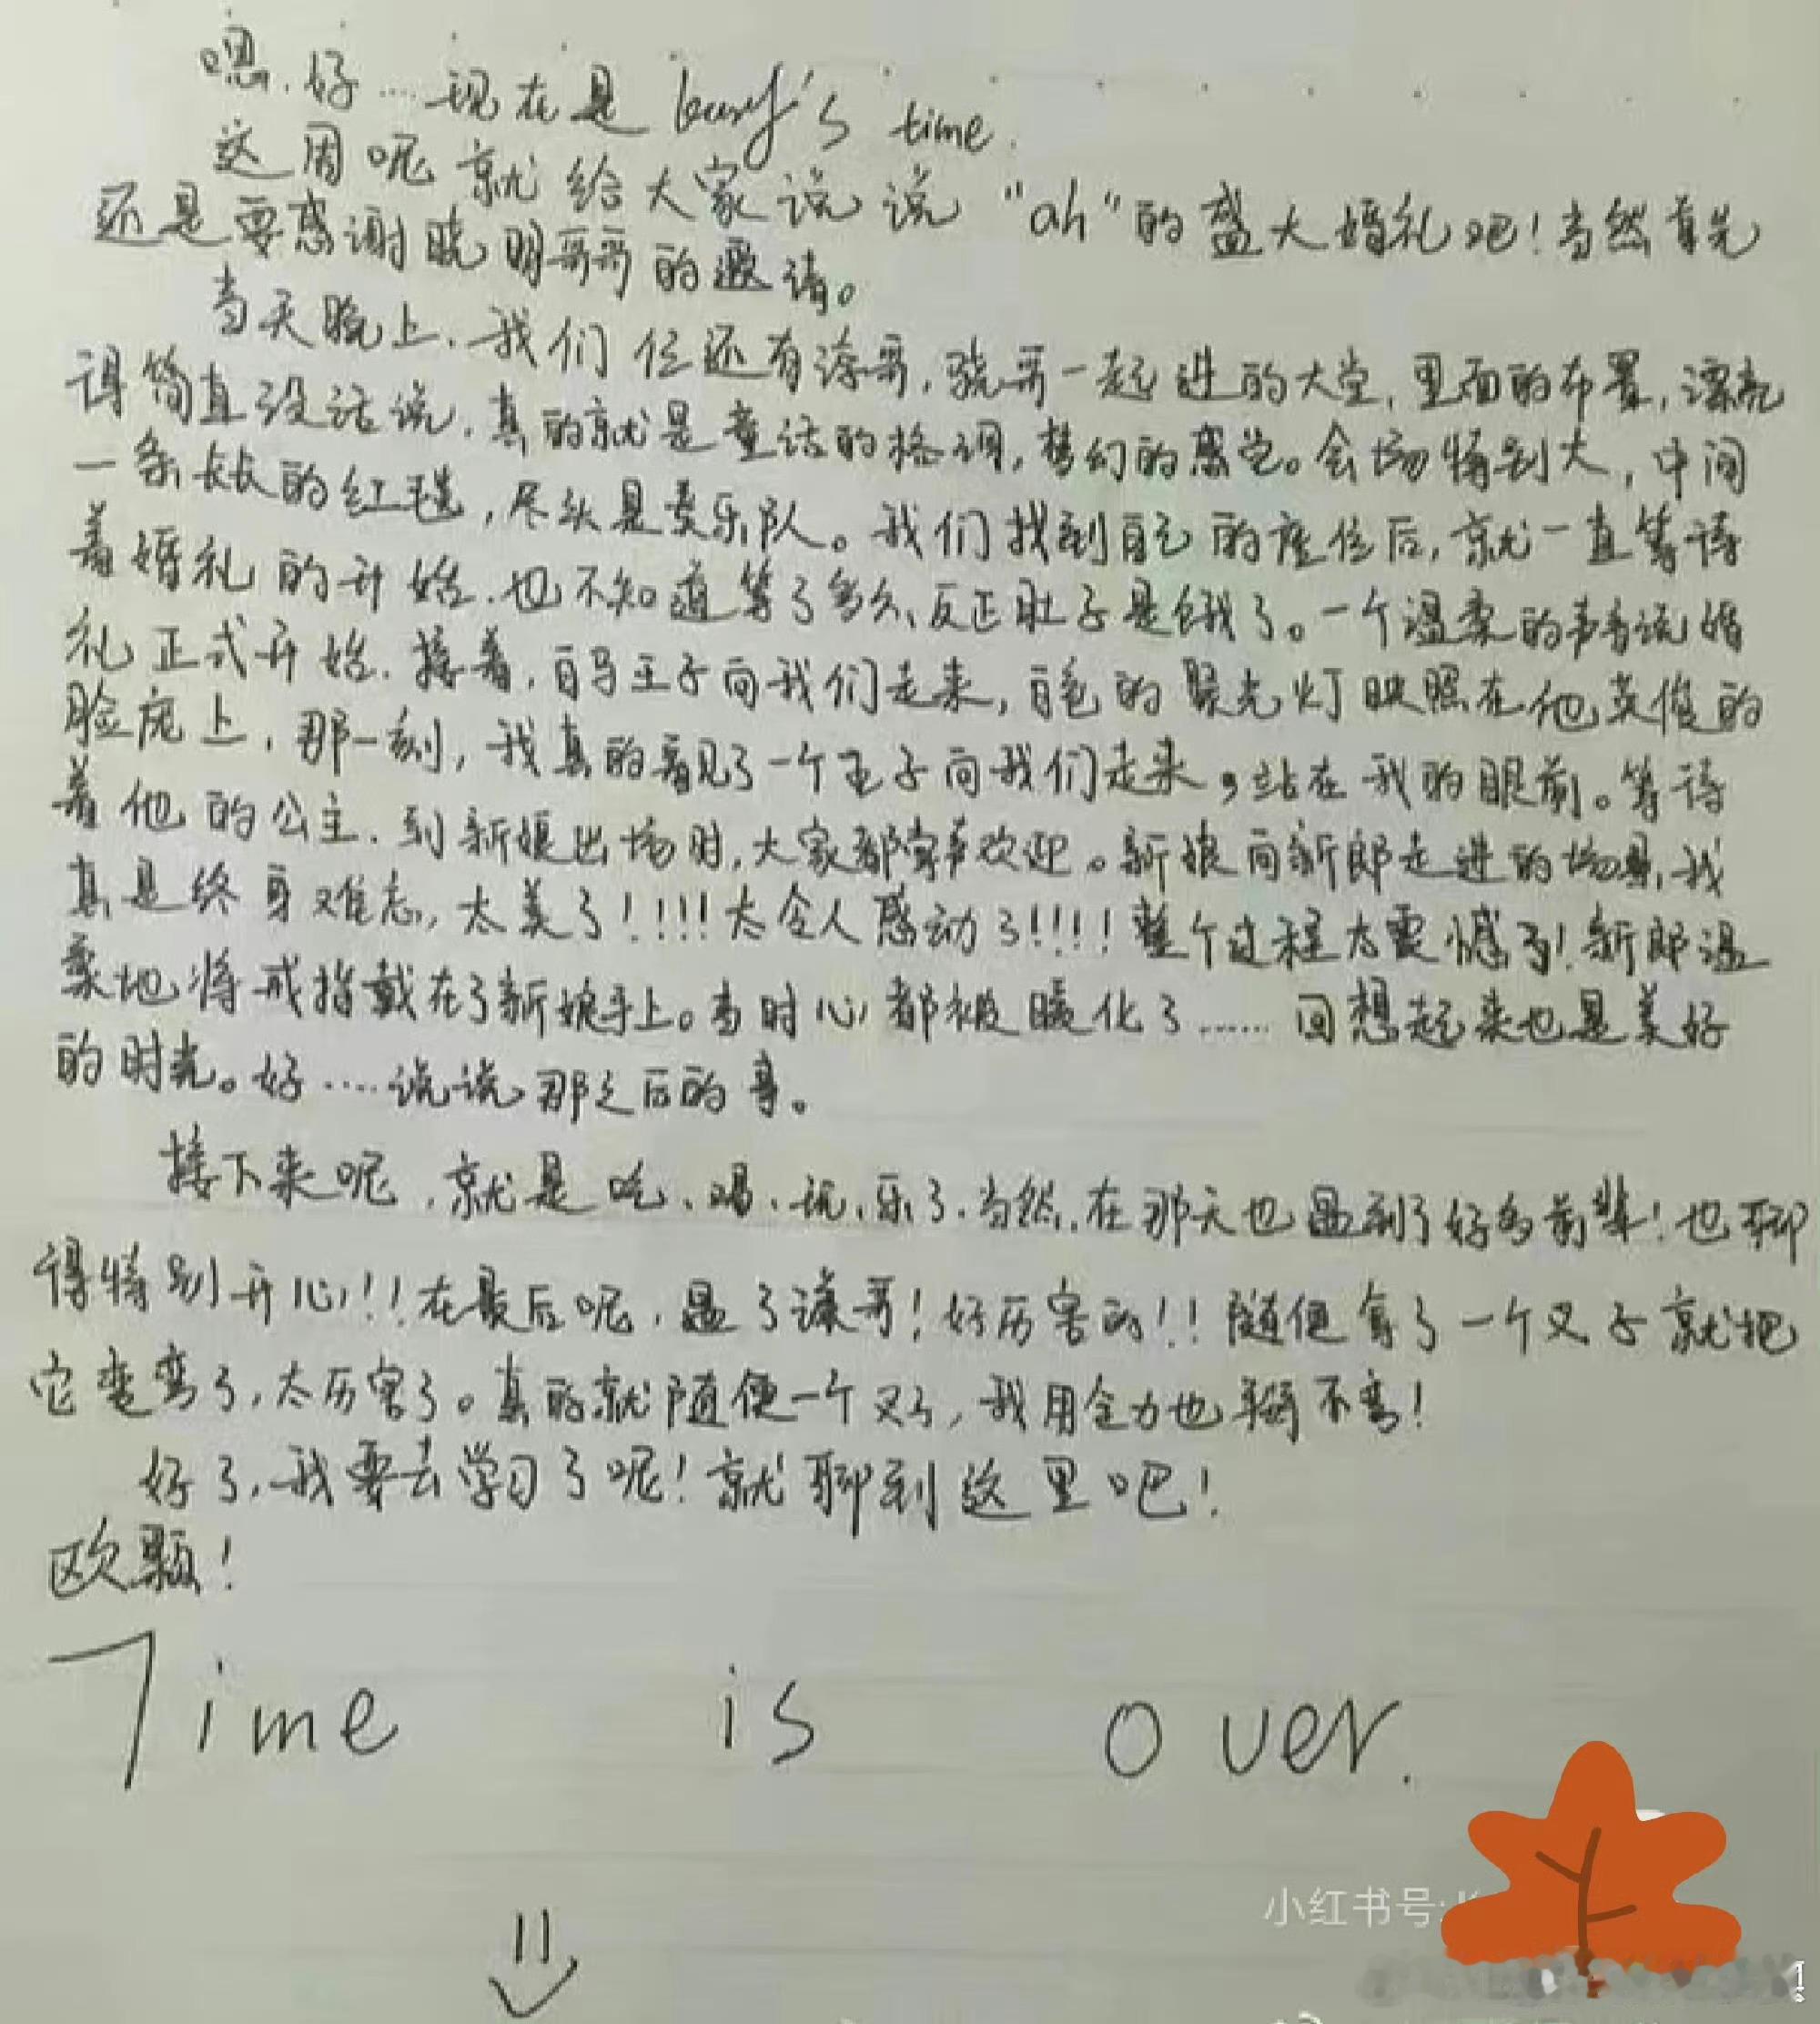 嗯.好……现在是 karry's time.
这周呢就给大家说说"ah"的盛大婚礼吧!当然首先
还是要感谢晓明哥哥的邀请。
当天晚上.我们 位还有涛哥,骁哥一起进的大堂,里面的布置,漂亮
得简直没话说.真的就是童话的格调,梦幻的感觉。会场特别大,中间
一条长长的红毯,尽头是奏乐队。我们找到自己的座位后,就一直等待
着婚礼的开始.也不知道等了多久、反正肚子是饿了。一个温柔的声音说婚
礼正式开始.接着,白马王子向我们走来,白色的聚光灯映照在他英俊的
脸庞上,那一刻,我真的看见了一个王子向我们走来,站在我的眼前。等待
着他的公主.到新娘出场时,大家都掌声欢迎。新娘向新郎走进的场景,我
真是终身难忘,太美了!!!!太令人感动了!!!!整个过程太震憾了!新郎温
柔地将戒指戴在了新娘手上。当时心都被暖化了……回想起来也是美好
的时光。好……说说那之后的事。
接下来呢,就是吃、喝、玩、乐了.当然,在那天也遇到了好多前辈!也聊
得特别开心!!在最后呢,遇了 哥!好厉害的!!随便拿了一个叉子就把
它变弯了,太厉害了。真的就随便一个叉子,我用全力也掰不弯!
好了,我要去学习了呢!就聊到这里吧!
欧颗!
Time is over.
小红书号: